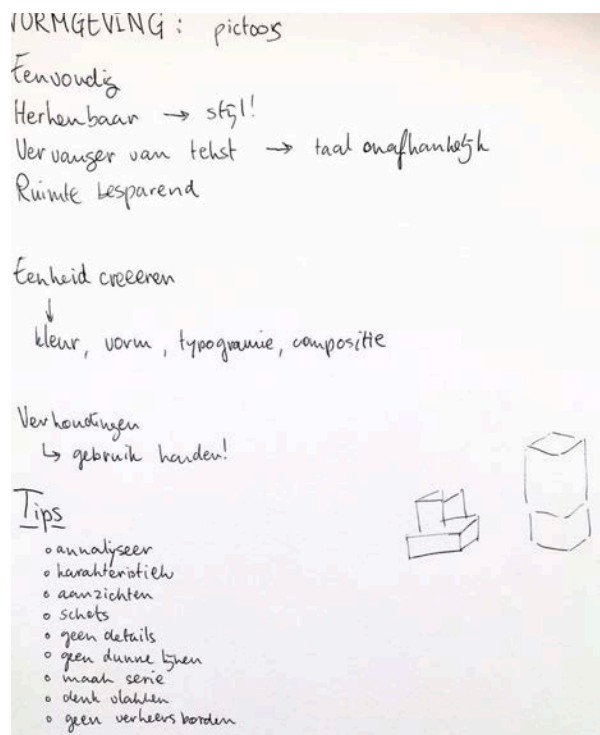 VORMGEVING : pictoos
Eenvoudig
Herkenbaar → stijl!
Vervanger van tekst → taal onafhankelijk
Ruimte besparend
Eenheid creeëren
↓
kleur, vorm, typogramie, compositie
Verhoudingen
↳ gebruik handen!
Tips
◦ annalyseer
◦ karakteristiek
◦ aanzichten
◦ schets
◦ geen details
◦ geen dunne lijnen
◦ maak serie
◦ denk vlakken
◦ geen verkeersborden